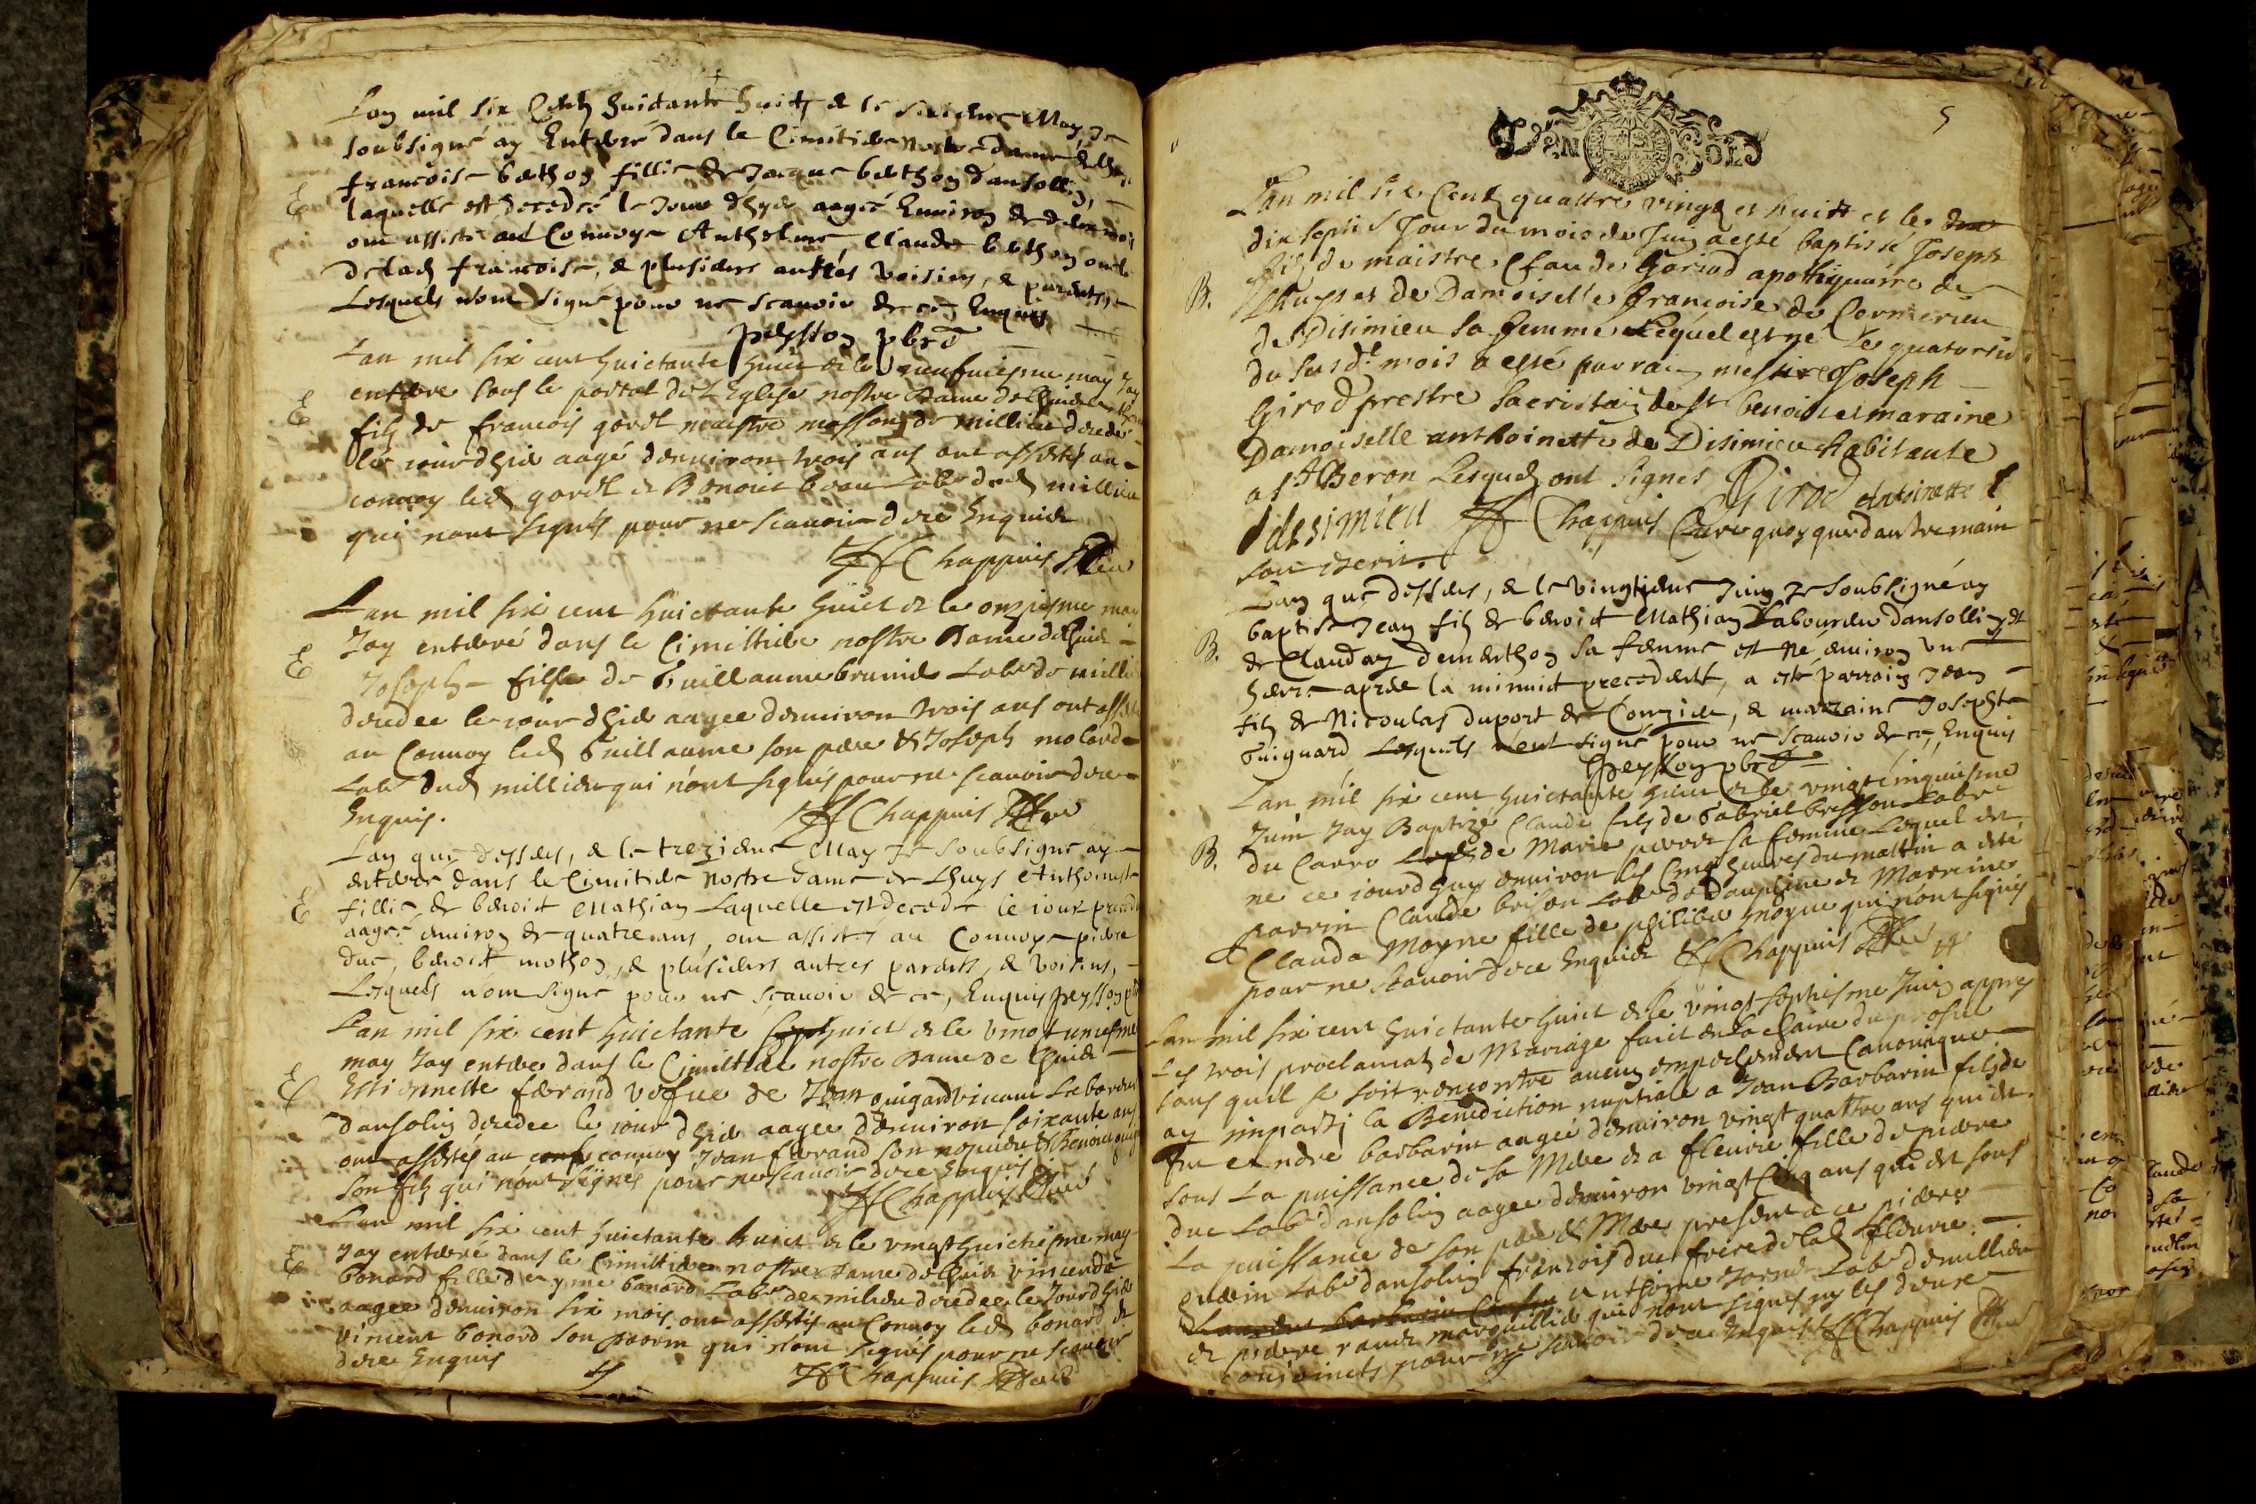 Lan mil six Cents huictante huict & le May Je
soubsigné ay Enterré dans le Cimitiere nostre dame de
francoise berthon fillie de Jacque berthon dansollin,
laquelle est decedée le Jour dhyer aagée Environ de
ont assisté au Convoye Anthelme, Claude berthon oncle
de lad francoise, & plusieurs autres voisins, & parents,
Lesquels nont signé pour ne scavoir de ce Enquis
peysson pbre
E
Lan mil six cent huictante huict & le neufuiesme may Jay
enterre sous le portal de L'Eglise nostre Dame de Lhuis
filz de francois gorcl maistre masson de millieu decedé
le iour dhier aagé denviron trois ans ont assistés au
convoy led gorcl & Benoict Labr dud millieu
qui nont signés pour ne scavoir de ce Enquis
Chappuis Curé
E
Lan mil six cent huictante huict & le onziesme may
Jay enterré dans le Cimittiere nostre Dame de Lhuis
Joseph fille de Guillaume brunier Labr de millieu
decedee le iour dhier aagee denviron trois ans ont assisté
au Convoy led Guillaume son pere & Joseph molard
Labr dud millieu qui nont signés pour ne scavoir de ce
Enquis. Chappuis Curé
E
Lan que dessus, & le treziesme May Je soubsigné ay
enterré dans le Cimitiere nostre dame de Lhuys Anthoinette
fillie de benoict Mathian Laquelle est decedée le iour precedent
aagée environ de quatre ans, ont assistes au Convoye pierre
duc, benoict mothon, & plusieurs autres parents, & voisins,
Lesquels nont signe pour ne scavoir de ce, Enquis peysson pbre
E
Lan mil six cent huictante huict & le vingt uniesme
may Jay enterre dans le Cimittiere nostre Dame de Lhuis
Estiennette ferrand vefue de Jean guigard vivant Laboureur
dansolin decedee le iour dhier aagee denviron soixante ans
ont assistés au convoy Jean ferrand son nepveu & Benoict guigard
son filz qui nont signés pour ne scavoir de ce Enquis
Chappuis Curé
E
Lan mil six cent huictante huict & le vingt huictiesme may
Jay enterré dans le Cimittiere nostre dame de Lhuis vincende
bonard fille deyme bonard Labr de milieu decedee le Jourdhier
aagee denviron six mois ont assistés au Convoy led bonard &
vincent bonard son parrin qui nont signés pour ne scavoir
de ce Enquis Chappuis Curé
5
GEN SOL
Lan mil six Cent quattre vingt et huitt et le
dix septieS Jour du mois de Juin a esté baptissé Joseph
filz de maistre Claude Goriod apothiquaire de
Lhuys et de Damoiselle françoise de Cormorieu
de Disimieu sa femme Lequel est né Le quatorsie
du susdt mois a esté parrain messire Joseph
Girod prestre sacristain de st benoist et maraine
Damoiselle anthoinette de Disimieu habitante
a st Beron Lesquels ont signes Girod Antoinette
desimieu Chappuis Curé quoy que dautre main
soit escrit.
B.
Lan que dessus, & le vingtiesme Juin Je soubsigné ay
baptisé Jean filz de benoict Mathian Laboureur dansollin &
de Clauday demerthon sa femme est né environ une
heure apres la minuit precedent, a esté parrain Jean
filz de Nicoulas duport de Conzieu, & marraine Josephte
Guignard Lesquels nont signé pour ne scavoir de ce, Enquis
peysson pbre
B.
Lan mil six cent huictante huict & le vingt cinquiesme
Juin Jay Baptizé Claude filz de Gabriel bresson Labr
du Carro & de Marie sa femme Lequel est
né ce iourdhuy environ les cinq heures du mattin a esté
parrin Claude brison Labr de Dauphine & Marrine
Clauda Moyne fille de philibert moyne qui nont signés
pour ne scavoir de ce Enquis Chappuis Curé
B.
Lan mil six cent huictante huict & le vingt septiesme Juin appres
Les trois proclamats de Mariage faict en la chaire du prosne
sans quil se soit rencontré aucun empechement Canonique
ay imparty la Benediction nuptiale a Jean Barbarin filz de
feu endre barbarin aagé denviron vingt quattre ans qui est
sous La puissance de sa Mere & a fleurie fille de pierre
duc Labr dansolin aagee denviron vingt Cinq ans qui est sous
La puissance de son pere & Mere present a ce pierre
Labr dansolin francois duc frere de lad fleurie
anthoine Labr de millieu
& pierre marguillié qui nont signes ny les
conjoincts pour ne scavoir de ce Enquis Chappuis Curé